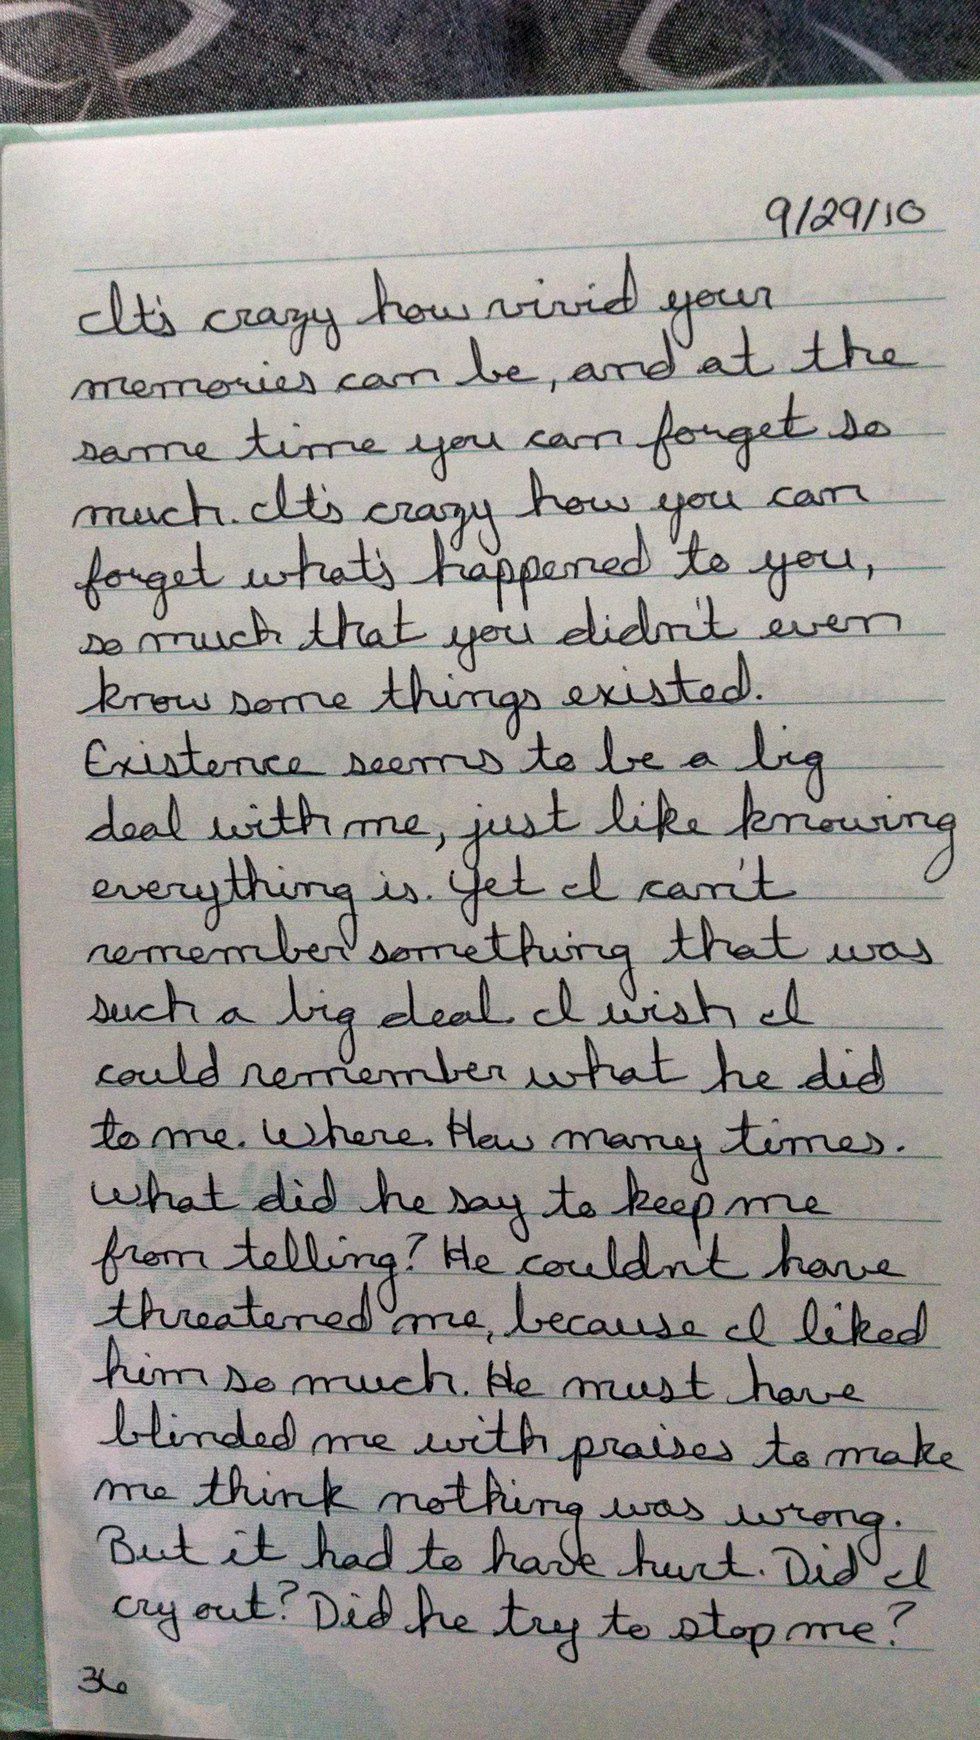 9/29/10
It's crazy how vivid your
memories can be, and at the
same time you can forget so
much. It's crazy how you can
forget what's happened to you,
so much that you didn't even
know some things existed.
Existence seems to be a big
deal with me, just like knowing
everything is. Yet I can't
remember something that was
such a big deal. I wish I
could remember what he did
to me. Where. How many times.
What did he say to keep me
from telling? He couldn't have
threatened me, because I liked
him so much. He must have
blinded me with praises to make
me think nothing was wrong.
But it had to have hurt. Did I
cry out? Did he try to stop me?
36